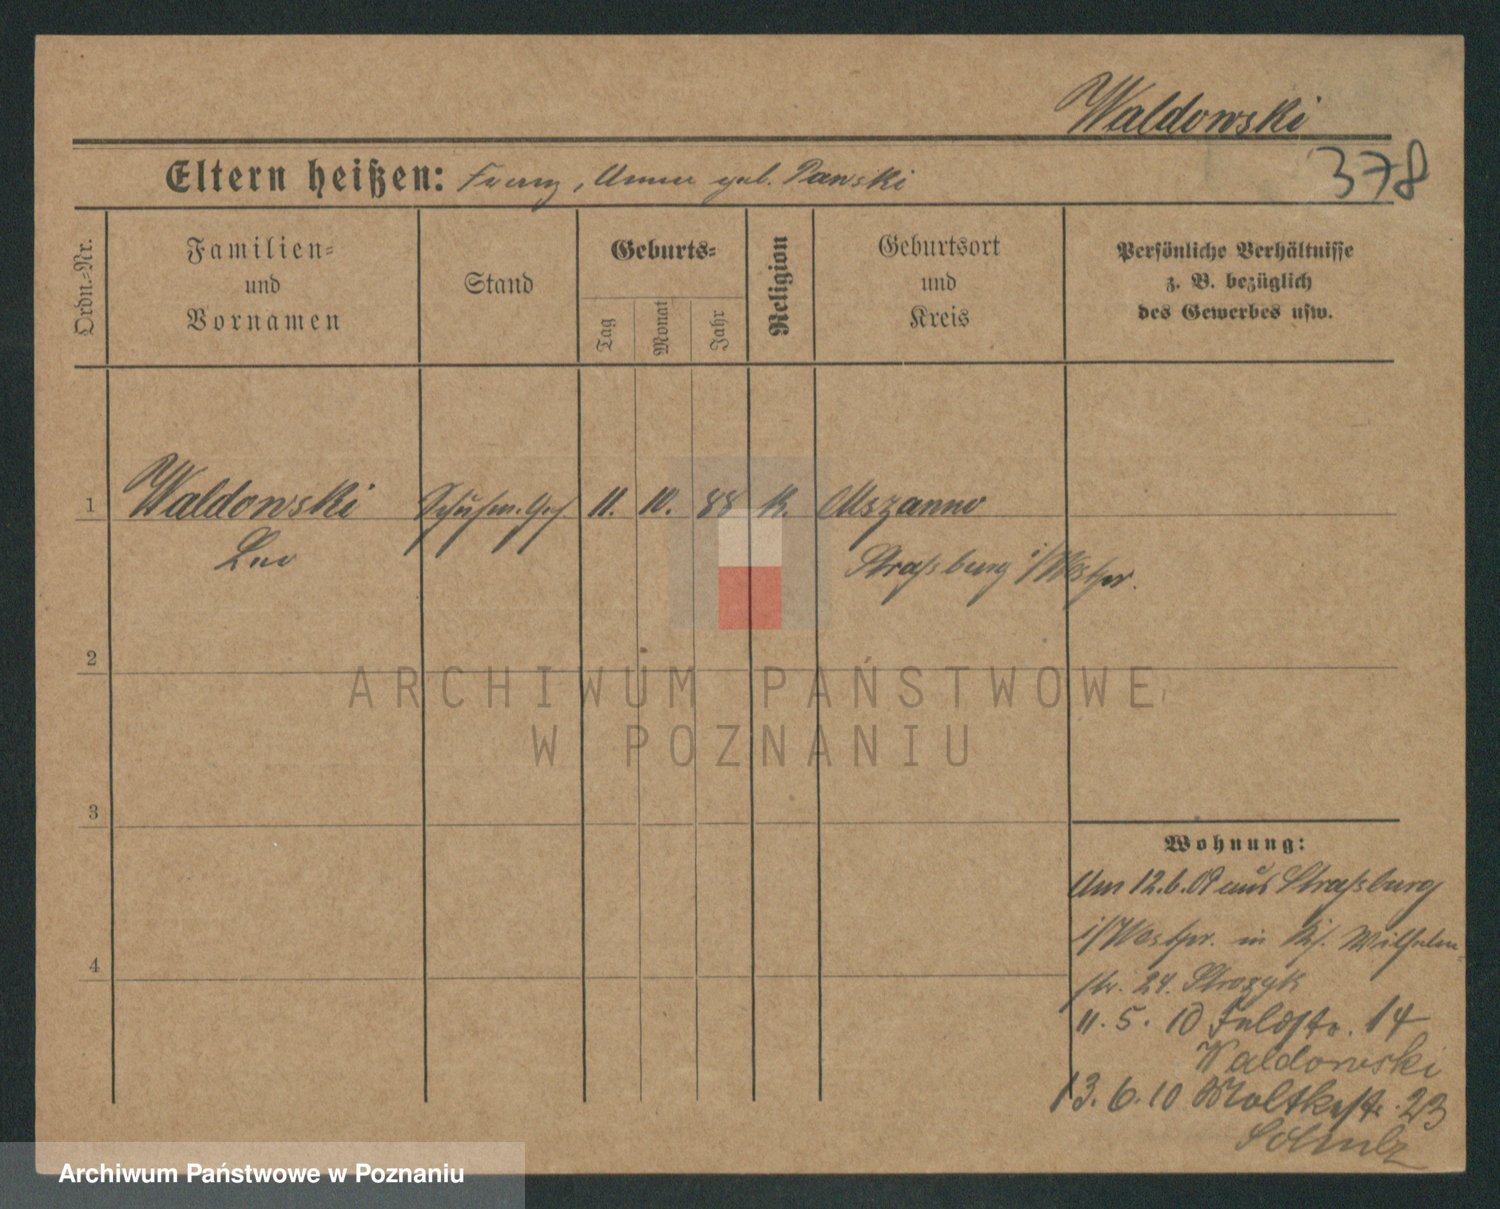 Waldowski
378
Eltern heißen: Franz, Anna geb. Panski
Ordn.=Nr.
Familien=
und
Vornamen
Stand
Geburts=
Tag
Monat
Jahr
Religion
Geburtsort
und
Kreis
Persönliche Verhältnisse
z. B. bezüglich
des Gewerbes usw.
1 Waldowski 11. 10. 88 K. Mszanno
Leo Straßburg i/Westpr.
2
ARCHIWUM PAŃSTWOWE
W POZNANIU
3
Wohnung:
Am 12.6.09 aus Straßburg
i/Westpr. in Wilhelm-
4
str. 24. Strozyk
11. 5. 10 Feldstr. 14
Waldowski
13. 6. 10 Moltkestr. 23
Archiwum Państwowe w Poznaniu